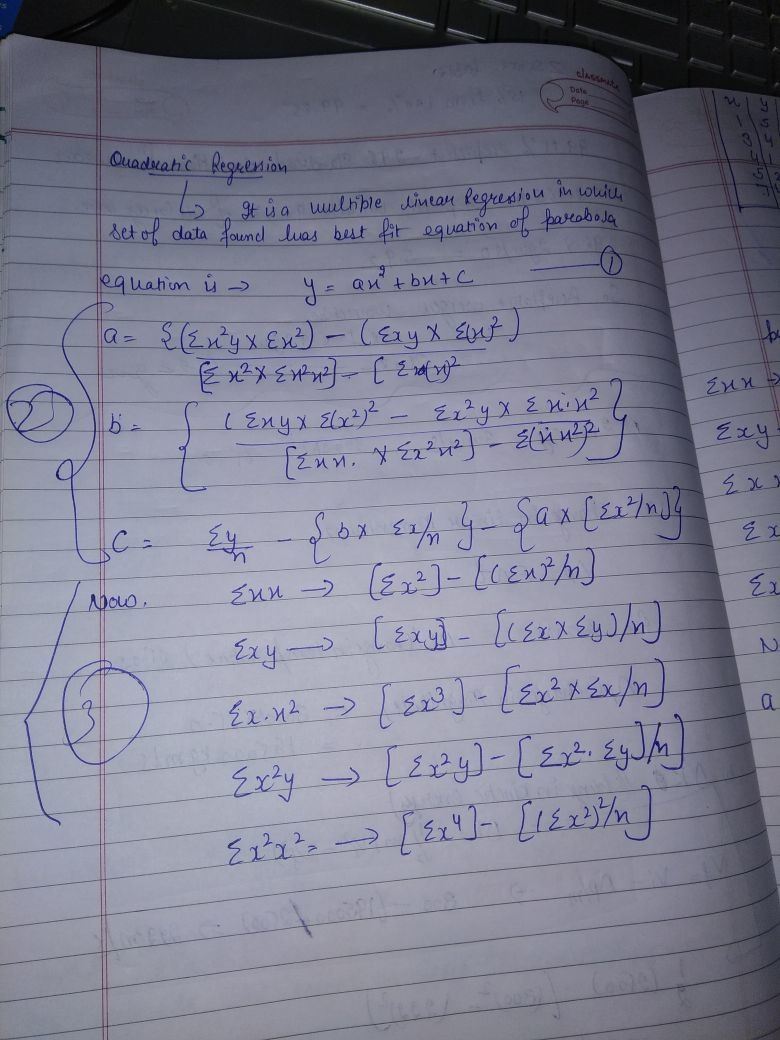 classmate
Date
Page
Quadratic Regression
↳ It is a multiple linear Regression in which
set of data found has best fit equation of parabola
equation is → y = ax² + bx + c ——— ①
a = {(Σx²y × Σxx) − (Σxy × Σ(x)²)
[Σx² × Σx²x²] − [Σx(x)²
2
b = { (Σxy × Σ(x²)² − Σx²y × Σx·x²
[Σxx. × Σx²x²] − Σ(x x²)² }
C = Σy/n − {b × Σx/n} − {a × [Σx²/n]}
Now. Σxx → [Σx²] − [(Σx)²/n]
Σxy → [Σxy] − [(Σx × Σy)/n]
3
Σx·x² → [Σx³] − [Σx² × Σx/n]
Σx²y → [Σx²y] − [Σx². Σy]/n]
Σx²x² = → [Σx⁴] − [(Σx²)²/n]
x y
1 5
3 4
5
Σxx →
Σxy
Σx
Σx
Σx
N
a